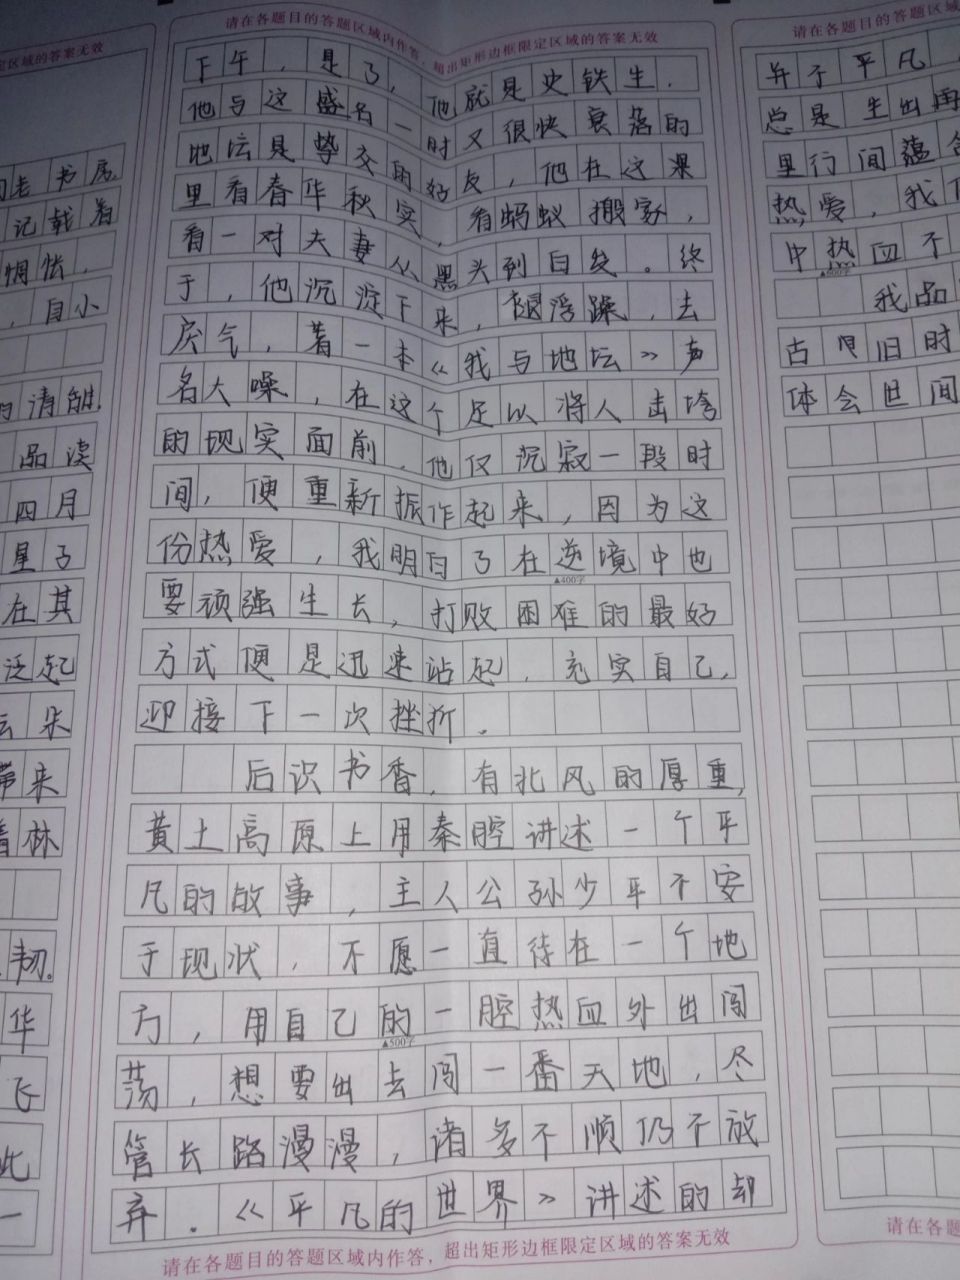 请在各题目的答题区域内作答，超出矩形边框限定区域的答案无效
区域的答案无效
老书房
记载着
惆怅，
，自小
清甜，
品读
四月
星子
在其
泛起
云朵
带来
着林
韧。
华
飞
此
一
下午，是了，他就是史铁生．
他与这盛名一时又很快衰落的
地坛是挚交的好友，他在这里
里看春华秋实，看蚂蚁搬家，
看一对夫妻从黑头到白发。终
于，他沉淀下来，褪浮躁，去
戾气，着一本《我与地坛》声
名大噪，在这个足以将人击垮
的现实面前，他仅沉寂一段时
间，便重新振作起来，因为这
份热爱，我明白了在逆境中也
▲400字
要顽强生长，打败困难的最好
方式便是迅速站起，充实自己，
迎接下一次挫折．
后识书香，有北风的厚重，
黄土高原上用秦腔讲述一个平
凡的故事，主人公孙少平不安
于现状，不愿一直待在一个地
方，用自己的一腔热血外出闯
▲500字
荡，想要出去闯一番天地，尽
管长路漫漫，诸多不顺仍不放
弃．《平凡的世界》讲述的却
请在各题目的答题区域内作答，超出矩形边框限定区域的答案无效
请在各题目的答题区域
并不平凡，
总是生出
里行间蕴含
热爱，我
中热血不
▲600字
我品
古旧时
体会世间
请在各题